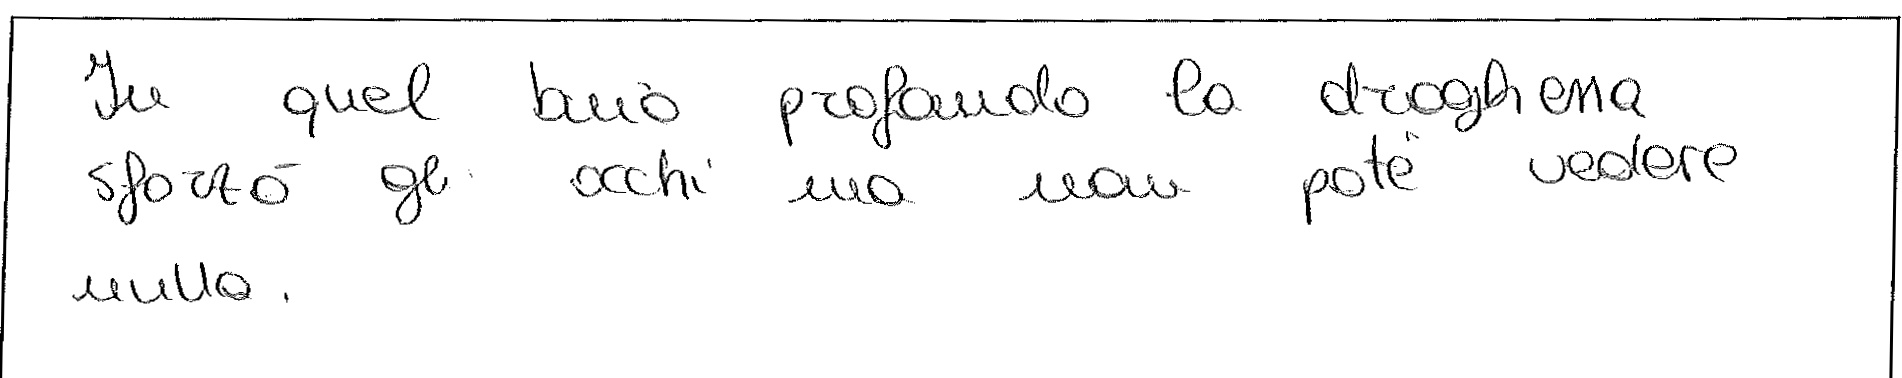 In quel buio profondo la drogheria
sforzò gli occhi ma non poté vedere
nulla.